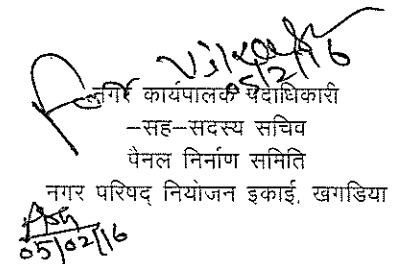 05/2/16
कार्यपालक पदाधिकारी
–सह–सदस्य सचिव
पैनल निर्नाण समिति
नगर परिषद् नियोजन इकाई, खगडिया
05/02/16